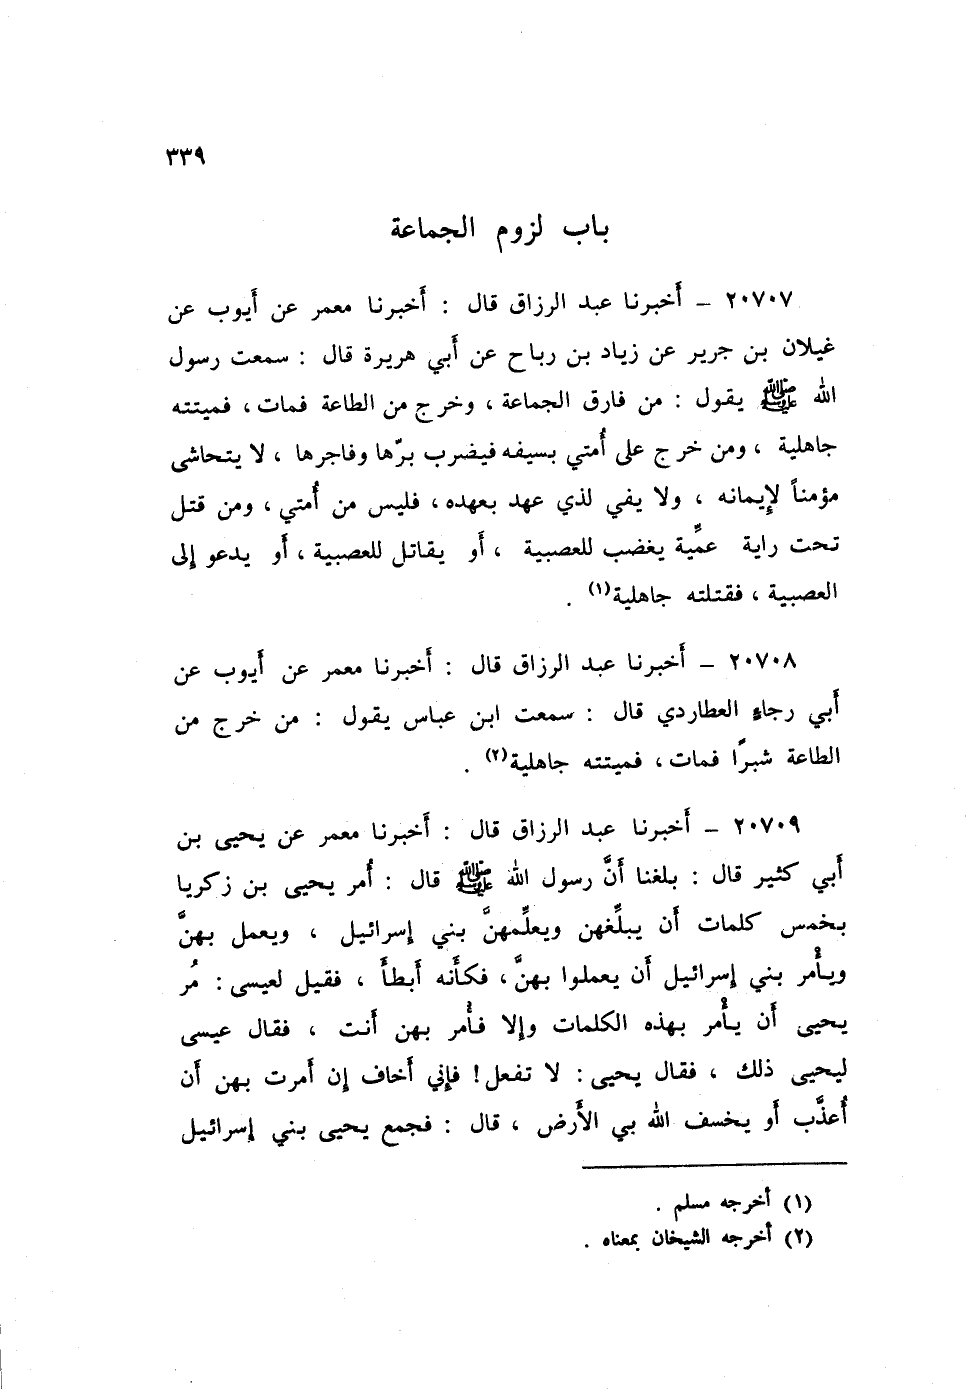 ٣٣٩
باب لزوم الجماعة
٢٠٧٠٧ – أخبرنا عبد الرزاق قال : أخبرنا معمر عن أيوب عن
غيلان بن جرير عن زياد بن رباح عن أبي هريرة قال : سمعت رسول
الله ﷺ يقول : من فارق الجماعة ، وخرج من الطاعة فمات ، فميتته
جاهلية ، ومن خرج على أُمتي بسيفه فيضرب برّها وفاجرها ، لا يتحاشى
مؤمناً لإيمانه ، ولا يفي لذي عهد بعهده ، فليس من أُمتي ، ومن قتل
تحت راية عمِّية يغضب للعصبية ، أو يقاتل للعصبية ، أو يدعو إلى
العصبية ، فقتلته جاهلية(١) .
٢٠٧٠٨ – أخبرنا عبد الرزاق قال : أخبرنا معمر عن أيوب عن
أبي رجاءٍ العطاردي قال : سمعت ابن عباس يقول : من خرج من
الطاعة شبرًا فمات ، فميتته جاهلية(٢) .
٢٠٧٠٩ – أخبرنا عبد الرزاق قال : أخبرنا معمر عن يحيى بن
أبي كثير قال : بلغنا أنَّ رسول الله ﷺ قال : أُمر يحيى بن زكريا
بخمس كلمات أن يبلِّغهن ويعلِّمهنَّ بني إسرائيل ، ويعمل بهنَّ
ويأْمر بني إسرائيل أن يعملوا بهنَّ ، فكأَنه أبطأَ ، فقيل لعيسى : مُر
يحيى أن يأْمر بهذه الكلمات وإلا فأْمر بهن أنت ، فقال عيسى
ليحيى ذلك ، فقال يحيى : لا تفعل ! فإني أخاف إن أمرت بهن أن
أُعذَّب أو يخسف الله بي الأَرض ، قال : فجمع يحيى بني إسرائيل
(١) أخرجه مسلم .
(٢) أخرجه الشيخان بمعناه .